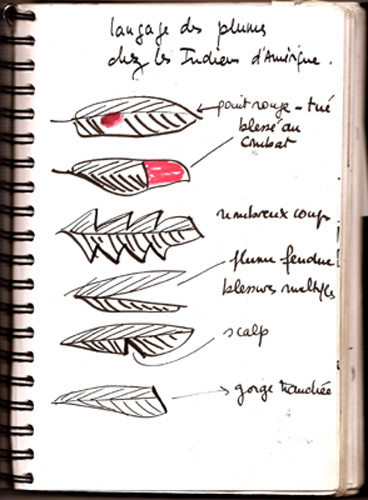 langage des plumes
chez les Indiens d'Amérique.
point rouge - tué
blessé au
combat
nombreux coups
plume fendue
blessures multiples
scalp
gorge tranchée